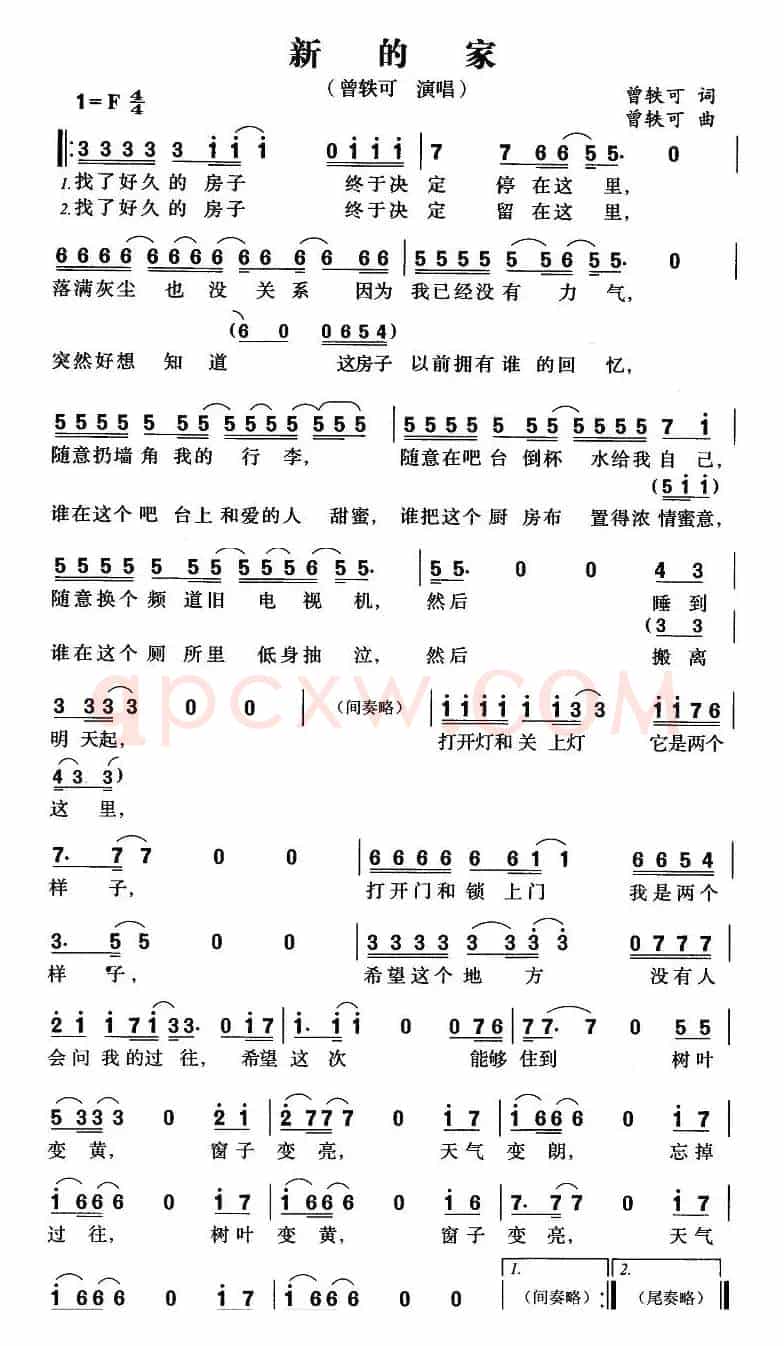 新 的 家
(曾轶可 演唱)
1=F 4/4
曾轶可 词
曾轶可 曲
3333 3 1 1 1 0111 | 7 7 66 55. 0 |
1.找了好久的 房子 终于决 定 停 在 这 里,
2.找了好久的 房子 终于决 定 留 在 这 里,
6666 6666 66 6 6 66 | 5555 5 565 55. 0
落满灰尘 也 没 关 系 因为 我已经没 有 力 气,
(6 0 0654)
突然好想 知 道 这房子 以前拥有谁 的 回 忆,
5555 5 55 5555 555 555 | 5555 5 55 5555 7 1 |
随意扔墙 角 我的 行 李, 随意在吧 台 倒杯 水给我 自 己,
(5 1 1)
谁在这个 吧 台上 和爱的人 甜蜜, 谁把这个 厨 房布 置得浓 情蜜意,
5555 5 55 5556 55. | 55. 0 0 4 3 |
随意换个 频 道旧 电 视 机, 然后 睡 到
(3 3
谁在这个 厕 所里 低身抽 泣, 然后 搬 离
3 333 3 0 0 | (间奏略) | 1111 1 133 1176 |
明 天起, 打开灯和 关 上灯 它是两个
43 3)
这 里,
7. 77 0 0 | 6666 6 611 6654 |
样 子, 打开门和 锁 上门 我是两个
3. 55 0 0 | 3333 3 333 0777 |
样 子, 希望这个 地 方 没有人
2 1 171 33. 017 | 1. 11 0 076 | 77. 7 0 55
会 问 我 的过 往, 希望 这 次 能够 住到 树叶
5 333 0 2 1 | 2 777 0 1 7 | 1 666 0 1 7 |
变 黄, 窗子 变 亮, 天气 变 朗, 忘掉
1 666 0 1 7 | 1 666 0 1 7 | 7. 77 0 1 7 |
过 往, 树叶 变 黄, 窗子 变 亮, 天气
1 666 0 1 7 | 1 666 0 0 | 1. (间奏略) :| 2. (尾奏略)
qpcxw.COM